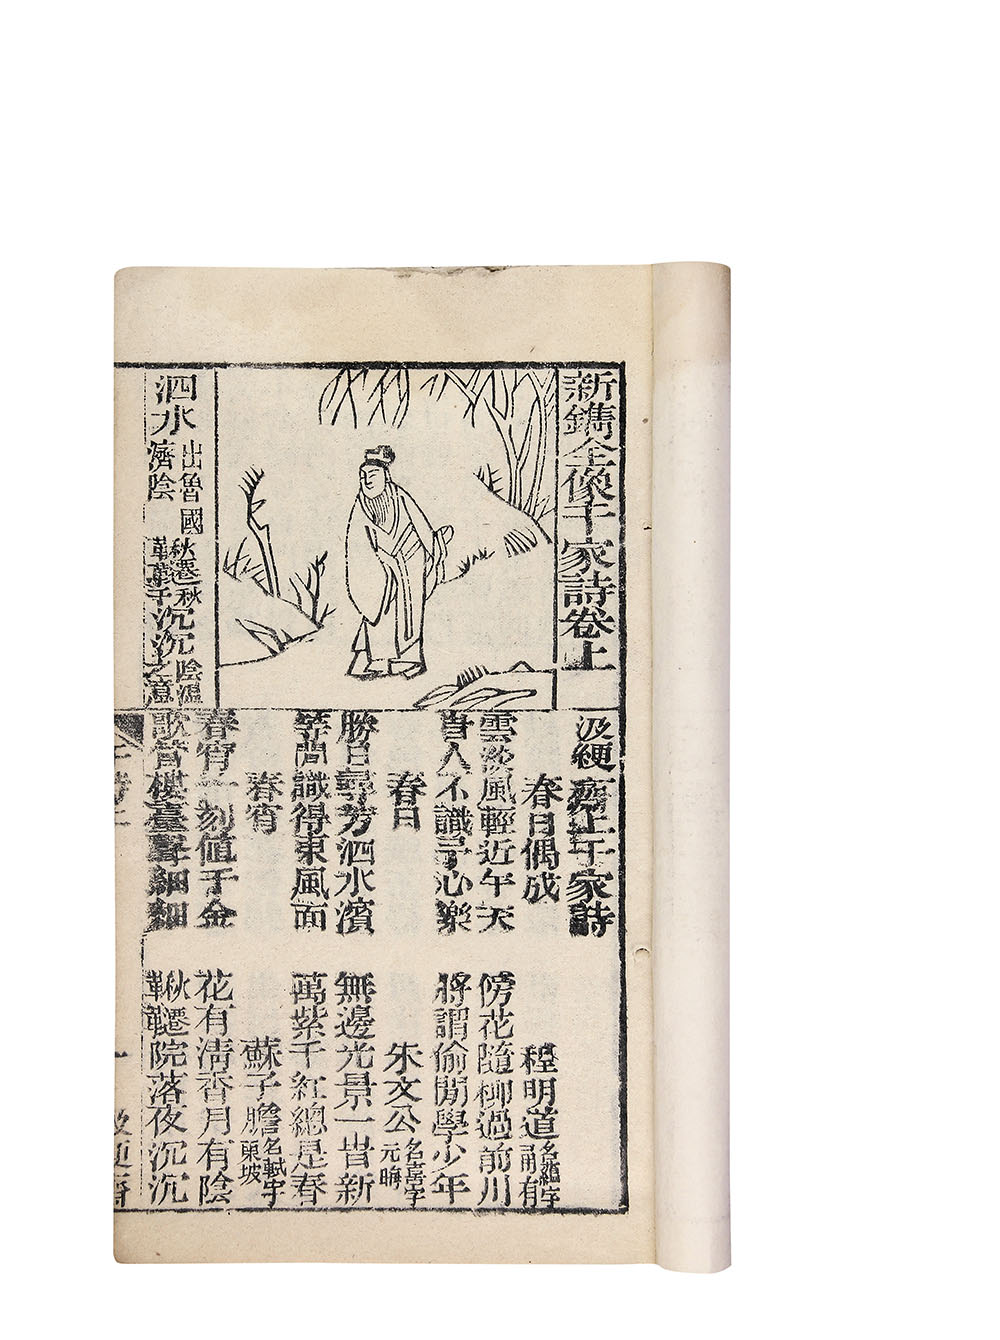 新鐫全像千家詩卷上
泗水 出魯國濟陰 鞦韆 秋千 沉沉 陰溫之意
汲綆齋上千家詩
春日偶成 程明道
雲淡風輕近午天 傍花隨柳過前川
旹人不識予心樂 將謂偷閒學少年
春日 朱文公 名熹字元晦
勝日尋芳泗水濱 無邊光景一旹新
等閒識得東風面 萬紫千紅總是春
春宵 蘇子瞻 名軾字東坡
春宵一刻值千金 花有清香月有陰
歌管樓臺聲細細 鞦韆院落夜沉沉